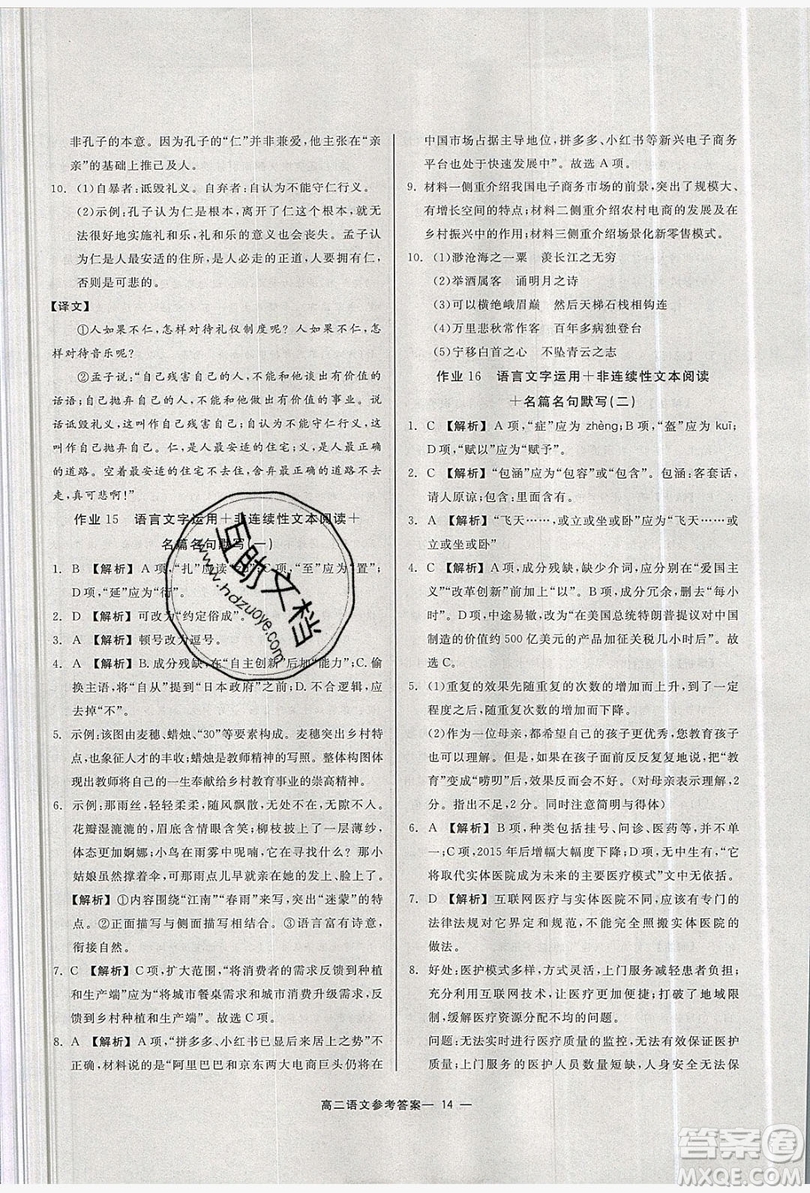 非孔子的本意。因为孔子的“仁”并非兼爱，他主张在“亲
亲”的基础上推己及人。
10. (1)自暴者：诋毁礼义。自弃者：自认为不能守仁行义。
(2)示例：孔子认为仁是根本，离开了仁这个根本，就无法实施礼和乐，礼和乐的意义也会丧失。孟子认
为仁是人最安适的住所，是人必走的正道，不行仁，
否则是可悲的。
【译文】
①人如果不仁，怎样对待礼仪制度呢？人如果不仁，怎
样对待音乐呢？
②孟子说：“自己残害自己的人，不能跟他谈出有价值的
话语；自己抛弃自己的人，不能跟他做出有价值的事业。
说话诋毁礼义，这就叫作自己残害自己；自认为不能守仁行
义，这叫作自己抛弃自己。仁，是人最安适的住宅；义，是人最正确
的道路。空着最安适的住宅不去住，舍弃最正确的道路不去
走，真可悲啊！”
作业 15 语言文字运用＋非连续性文本阅读＋
名篇名句默写(一)
1. B 【解析】A 项，“扎”应为“札”；C 项，“至”应为“置”；
D 项，“延”应为“衍”。
2. D 【解析】可改为“约定俗成”。
3. A 【解析】顿号改为逗号。
4. A 【解析】B. 成分残缺，在“自主创新”后加“能力”；C. 偷
换主语，将“应该”提到“日本政府”之前；D. 不合逻辑，应
为去掉“不”。
5. 示例：该图由麦穗、蜡烛、“30”等要素构成。麦穗突出乡村特
点，也象征人才的丰收；蜡烛是教师精神的写照。整体构图体
现出教师将自己的一生奉献给乡村教育事业的崇高精神。
6. 示例：那雨丝，轻轻柔柔，随风飘散，形成一片迷蒙的世界。
花瓣湿漉漉的，眉底含情悄无语；柳枝披上一层薄薄的轻纱，
体态更加婀娜；小鸟在雨雾中呢喃；风一吹，雨丝乱飘，那小
姑娘虽然撑着伞，可雨点儿早就亲在了她的发上、脸上了。
【解析】①内容围绕“江南”“春雨”来写，突出“迷蒙”的特
点。②正面描写与侧面描写相结合。③语言富有诗意，
衔接自然。
7. C 【解析】C 项，扩大范围，“将消费者的需求反馈到种植
和生产端”应为“将城市餐桌需求和消费升级需求，反馈到种植
和生产端”。故选 C 项。
8. A 【解析】A 项，“拼多多、小红书已显后来居上之势”不
正确；材料说的是“阿里巴巴和京东两大电商巨头仍将在
中国市场占据主导地位，拼多多、小红书等新兴电子商务
平台也处于快速发展中”。故选 A 项。
9. 材料一侧重介绍我国电子商务市场的前景，突出了规模大、
有增长空间的特点；材料二侧重介绍农村电商的发展及在
乡村振兴中的作用；材料三侧重介绍场景化新零售模式。
10. (1)渺沧海之一粟 羡长江之无穷
(2)举酒属客 诵明月之诗
(3)可以横绝峨眉巅 然后天梯石栈相钩连
(4)万里悲秋常作客 百年多病独登台
(5)宁移白首之心 不坠青云之志
作业 16 语言文字运用＋非连续性文本阅读
＋名篇名句默写(二)
1. C 【解析】A 项，“症”应为 zhèng；B 项，“盔”应为 kuī；
D 项，“赋以”应为“赋予”。
2. C 【解析】“包涵”应为“包容”或“包含”。包涵：客套话，
请人原谅；包含：里边含有。
3. A 【解析】“飞天……，或立或坐或卧”应为“飞天……；
或立或坐或卧”
4. C 【解析】A 项，成分残缺，缺少介词，应在“爱国主
义”“改革创新”前加“以”。B 项，不合逻辑，删去“每小
时”。D 项，中途易辙，改为“在美国总统特朗普提议对中国
制造的价值约 500 亿美元的产品加征关税几小时后”。故
选 C。
5. (1)重复的效果先随重复的次数的增加而上升，到达一
定程度后，就会随重复的次数的增加而下降。
(2)作为一个母亲，都希望自己的孩子更优秀，您教育孩子
也一样，可是同一件事如果反反复复地说，就会使“教
育”变成“唠叨”，效果反而不好。(对母亲表示理解，2
分，指出不足，2 分。同时注意简明与得体)
6. A 【解析】B 项，种类包括挂号、问诊、医药等，并非单
一；C 项，2015 年后增幅大幅度下降；D 项，无中生有，“它
将取代实体医院成为未来的主要医疗模式”文中没有。
7. A 【解析】互联网医疗与实体医院不同，应有专门的
法律法规对它界定和规范，不可以有实体医院的
做法。
8. 好处：医疗模式多样，方式灵活，上门服务减轻患者负担；
利用互联网技术，让医疗更加方便快捷，打破了地域限
制，缓解医疗资源分配不均的问题。
问题：无法掌握患者真实情况，诊断失误，无法保证医护
质量；上门服务的医护人员数量短缺，人身安全无法保
高二语文参考答案— 14 —
互助文档
www.hdzuoye.com
答案圈
MXQE.COM